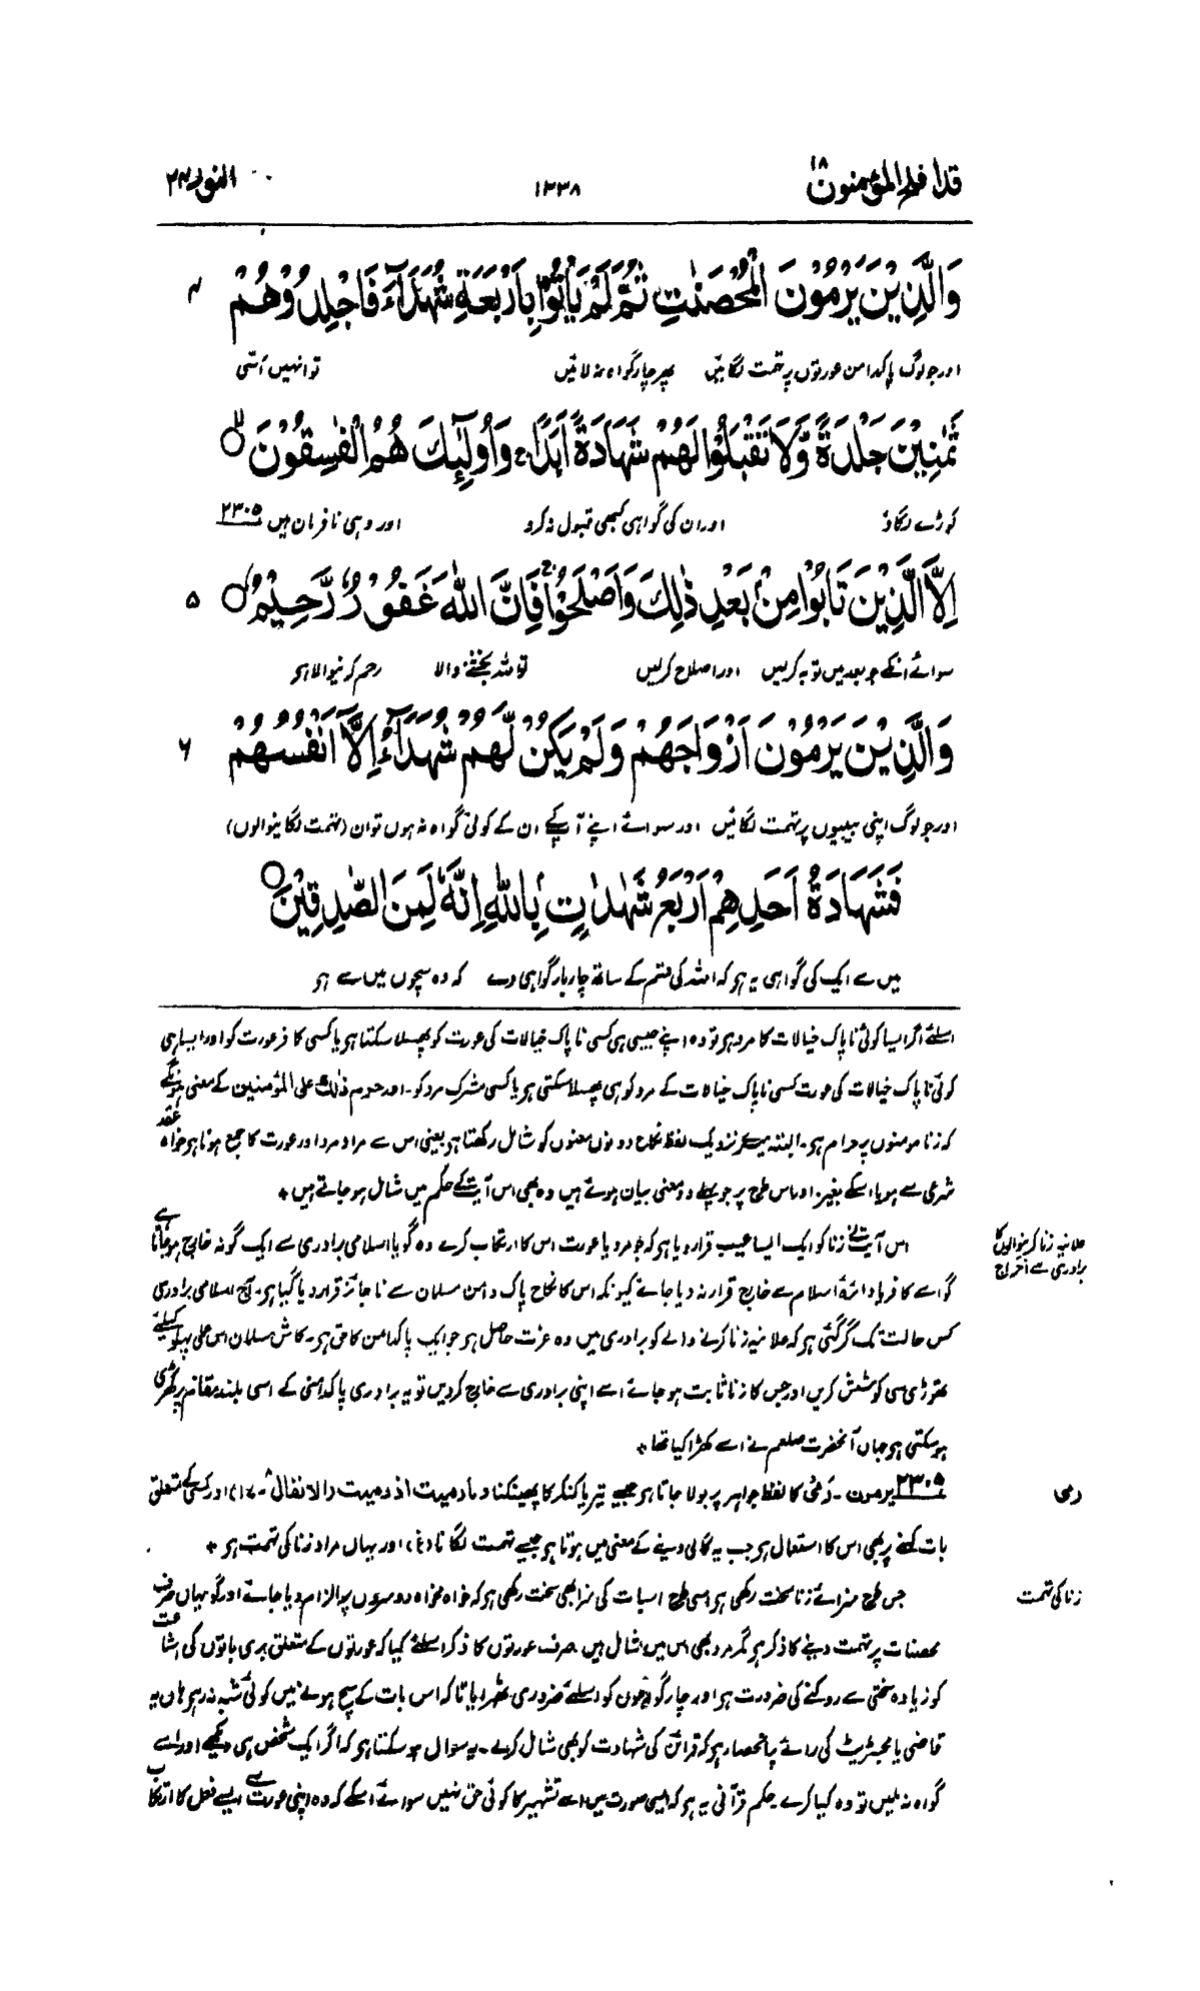 قد افلح المؤمنون ۱۸
۱۳۳۸
النور ۲۴
وَالَّذِيْنَ يَرْمُوْنَ الْمُحْصَنٰتِ ثُمَّ لَمْ يَاْتُوْا بِاَرْبَعَةِ شُهَدَآءَ فَاجْلِدُوْهُمْ ۴
اور جو لوگ پاکدامن عورتوں پر تہمت لگائیں پھر چار گواہ نہ لائیں تو انہیں اسّی
ثَمٰنِيْنَ جَلْدَةً وَّلَا تَقْبَلُوْا لَهُمْ شَهَادَةً اَبَدًا ۚ وَاُولٰٓئِكَ هُمُ الْفٰسِقُوْنَ ۙ
کوڑے لگاؤ اور ان کی گواہی کبھی قبول نہ کرو اور وہی نافرمان ہیں ۲۳۰۵
اِلَّا الَّذِيْنَ تَابُوْا مِنْۢ بَعْدِ ذٰلِكَ وَاَصْلَحُوْا ۚ فَاِنَّ اللّٰهَ غَفُوْرٌ رَّحِيْمٌ ۵
سوائے انکے جو بعد میں توبہ کریں اور اصلاح کریں تو اللہ بخشنے والا رحم کرنیوالا ہو
وَالَّذِيْنَ يَرْمُوْنَ اَزْوَاجَهُمْ وَلَمْ يَكُنْ لَّهُمْ شُهَدَآءُ اِلَّآ اَنْفُسُهُمْ ۶
اور جو لوگ اپنی بیبیوں پر تہمت لگائیں اور سوائے اپنے آپکے ان کے کوئی گواہ نہ ہوں تو ان (تہمت لگانیوالوں)
فَشَهَادَةُ اَحَدِهِمْ اَرْبَعُ شَهٰدٰتٍۭ بِاللّٰهِ اِنَّهٗ لَمِنَ الصّٰدِقِيْنَ
میں سے ایک کی گواہی یہ ہو کہ اللہ کی قسم کے ساتھ چار بار گواہی دے کہ وہ سچوں میں سے ہو
اسلئے اگر ایسا کوئی ناپاک خیالات کا مرد ہو تو وہ اپنے جیسی ہی کسی ناپاک خیالات کی عورت کو پھسلا سکتا ہو یا کسی کافر عورت کو اور ایسا ہی
کوئی ناپاک خیالات کی عورت کسی ناپاک خیالات کے مرد کو ہی پھسلا سکتی ہو یا کسی مشرک مرد کو۔ اور حرم ذلک علی المؤمنین کے معنی ہونگے
کہ زنا مومنوں پر حرام ہو۔ البتہ میرے نزدیک لفظ نکاح دونوں معنوں کو شامل رکھتا ہو یعنی اس سے مراد مرد اور عورت کا جمع ہونا ہو خواہ عقد
شرعی سے ہو یا اسکے بغیر۔ اور اس طرح پر جو پہلے دو معنی بیان ہوئے ہیں وہ بھی اس آیت کے حکم میں شامل ہو جاتے ہیں *
علانیہ زنا کرنیوالوں کا برادری سے اخراج
اس آیت نے زنا کو ایک ایسا عیب قرار دیا ہو کہ جو مرد یا عورت اس کا ارتکاب کرے وہ گویا اسلامی برادری سے ایک گونہ خارج ہو جاتا ہے
گو اسے کافر یا دائرۂ اسلام سے خارج قرار نہ دیا جائے کیونکہ اس کا نکاح پاک دامن مسلمان سے ناجائز قرار دیا گیا ہو۔ آج اسلامی برادری
کس حالت تک گر گئی ہو کہ علانیہ زنا کرنے والے کو برادری میں وہ عزت حاصل ہو جو ایک پاکدامن کا حق ہو۔ کاش مسلمان اس عملی پہلو کیلئے
تھوڑی سی کوشش کریں اور جس کا زنا ثابت ہو جائے اسے اپنی برادری سے خارج کر دیں تو یہ برادری پاکدامنی کے اسی بلند مقام پر کھڑی
ہو سکتی ہو جہاں آنحضرت صلعم نے اسے کھڑا کیا تھا *
رمی
۲۳۰۵ یرمون۔ رَمْیٌ کا لفظ جواہر پر بولا جاتا ہو جیسے تیر یا کنکر کا پھینکنا وما رمیت اذ رمیت (الانفال ۸-۱۷) اور کسی کے متعلق
بات کہنے پر بھی اس کا استعمال ہو جب یہ گالی دینے کے معنی میں ہوتا ہو جیسے تہمت لگانا (غ) اور یہاں مراد زنا کی تہمت ہو *
زنا کی تہمت
جس طرح سزائے زنا سخت رکھی ہو اسی طرح اس بات کی سزا بھی سخت رکھی ہو کہ خواہ مخواہ دوسروں پر الزام دیا جائے اور گو یہاں صرف
محصنات پر تہمت دینے کا ذکر ہو مگر مرد بھی اس میں شامل ہیں صرف عورتوں کا ذکر اسلئے کیا کہ عورتوں کے متعلق بری باتوں کی اشاعت
کو زیادہ سختی سے روکنے کی ضرورت ہو اور چار گواہوں کو اسلئے ضروری ٹھہرایا تاکہ اس بات کے سچ ہونے میں کوئی شبہ نہ رہے ہاں یہ
قاضی یا مجسٹریٹ کی رائے پر انحصار ہو کہ قرائن کی شہادت کو بھی شامل کرے۔ یہ سوال ہو سکتا ہو کہ اگر ایک شخص ہی دیکھے اور اسے
گواہ نہ ملیں تو وہ کیا کرے حکم قرآنی یہ ہو کہ ایسی صورت میں اسے تشہیر کا کوئی حق نہیں سوائے اسکے کہ وہ اپنی عورت سے ایسے فعل کا ارتکاب